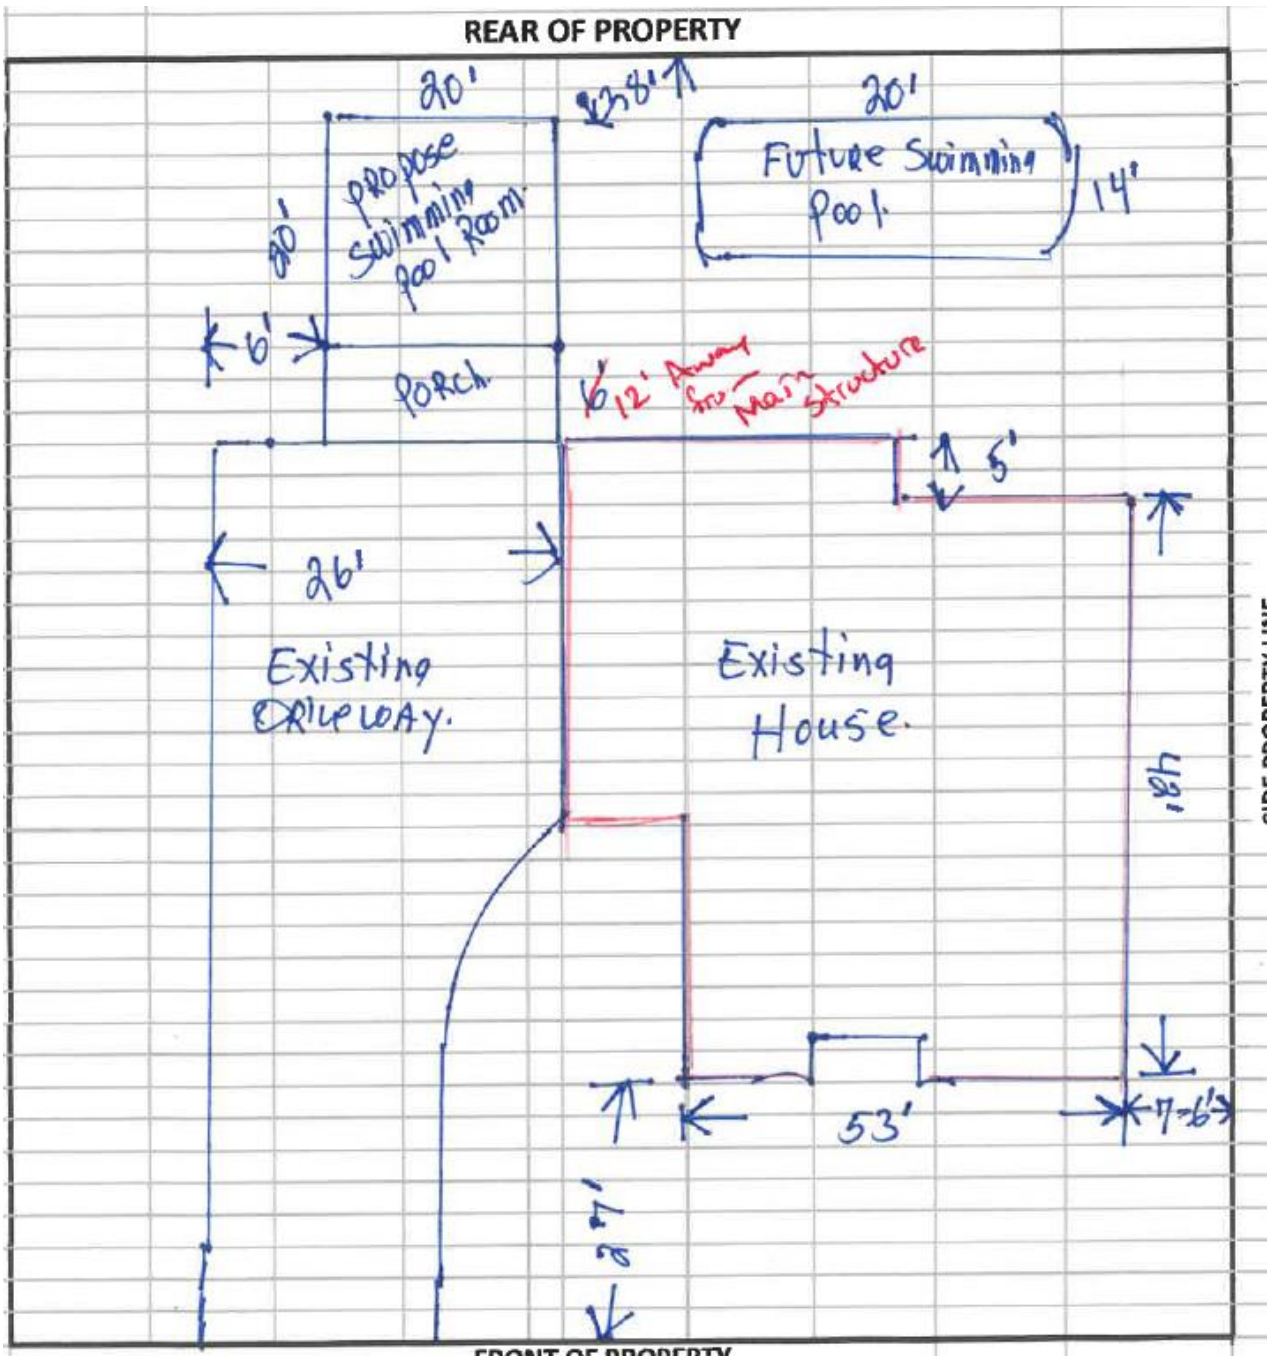 REAR OF PROPERTY
20'
8'
20'
PROPOSE
SWIMMING
POOL ROOM.
20'
Future Swimming
Pool.
14'
6'
PORCH.
6'
12' Away
from
Main
Structure
5'
26'
Existing
DRIVEWAY.
Existing
House.
48'
SIDE PROPERTY LINE
53'
7-6'
27'
FRONT OF PROPERTY